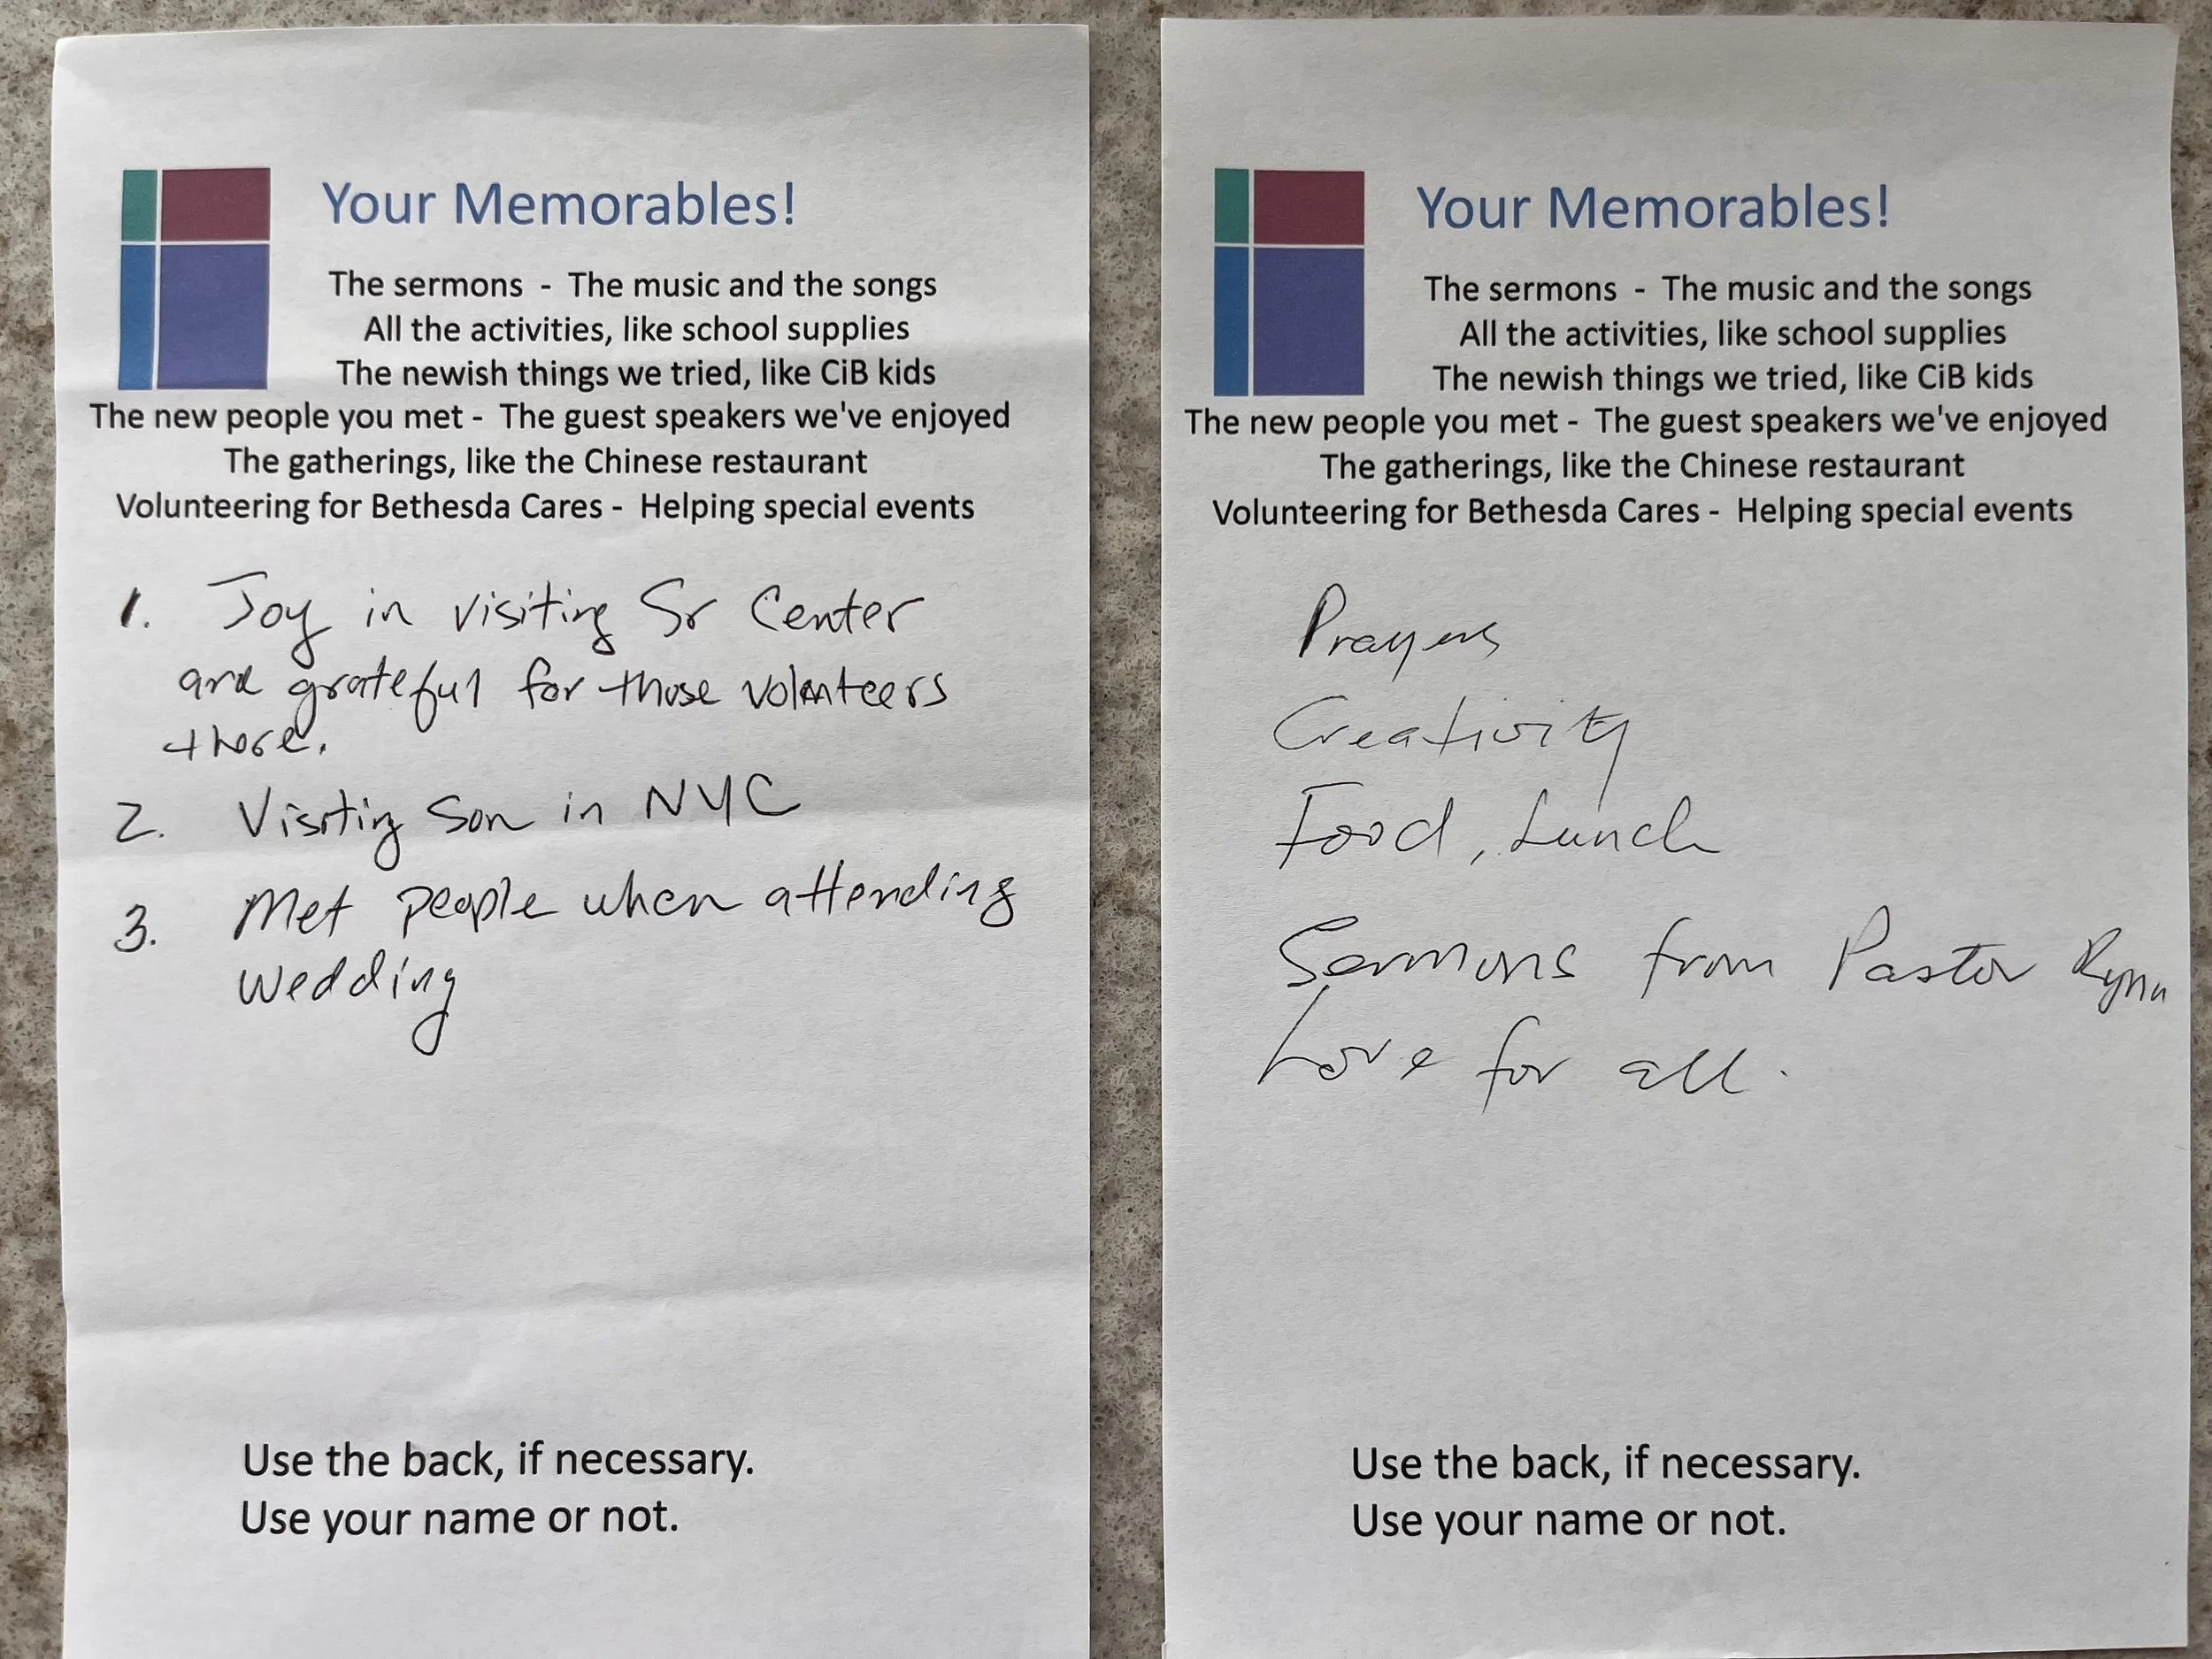 Your Memorables!
The sermons - The music and the songs
All the activities, like school supplies
The newish things we tried, like CiB kids
The new people you met - The guest speakers we've enjoyed
The gatherings, like the Chinese restaurant
Volunteering for Bethesda Cares - Helping special events
1. Joy in visiting Sr Center
and grateful for those volunteers
there.
2. Visiting Son in NYC
3. Met people when attending
wedding
Use the back, if necessary.
Use your name or not.
Your Memorables!
The sermons - The music and the songs
All the activities, like school supplies
The newish things we tried, like CiB kids
The new people you met - The guest speakers we've enjoyed
The gatherings, like the Chinese restaurant
Volunteering for Bethesda Cares - Helping special events
Prayers
Creativity
Food, Lunch
Sermons from Pastor
Love for all.
Use the back, if necessary.
Use your name or not.